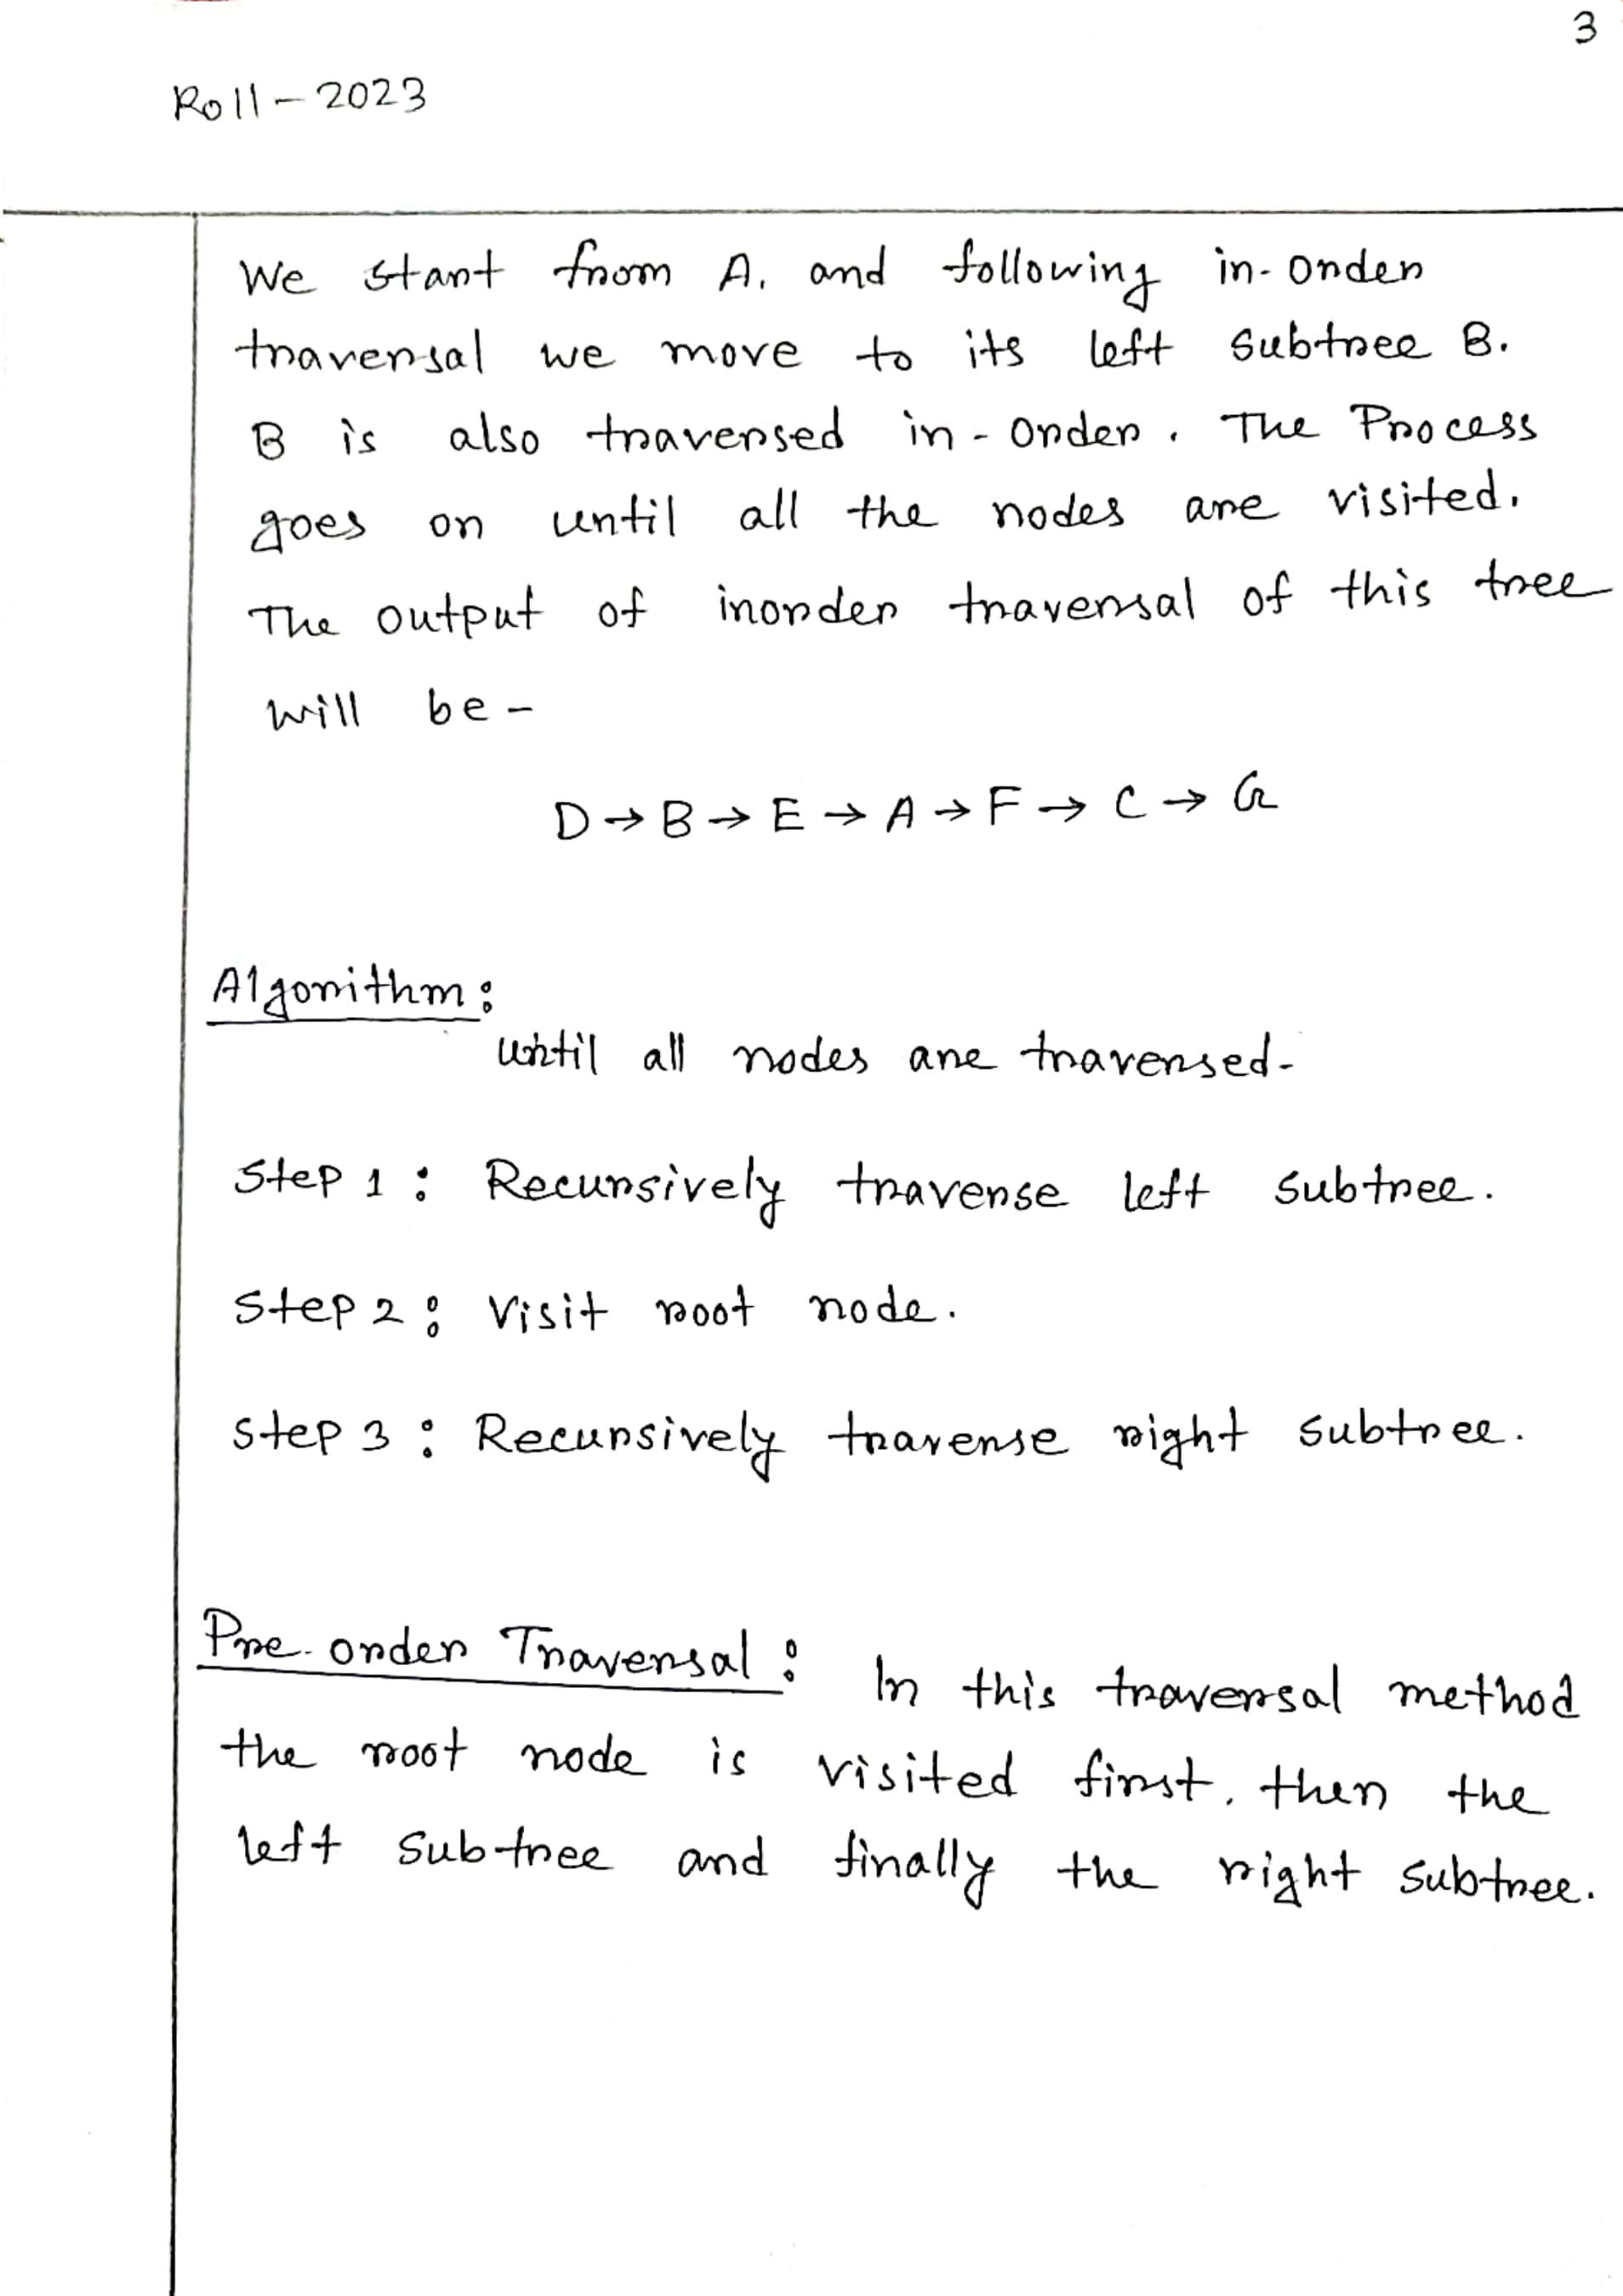 3
Roll - 2023
We start from A. and following in-order
traversal we move to its left subtree B.
B is also traversed in-order. The Process
goes on until all the nodes are visited.
The output of inorder traversal of this tree
will be -
D → B → E → A → F → C → G
Algorithm:
until all nodes are traversed-
Step 1: Recursively traverse left subtree.
Step 2: Visit root node.
Step 3: Recursively traverse right subtree.
Pre-order Traversal: In this traversal method
the root node is visited first, then the
left subtree and finally the right subtree.